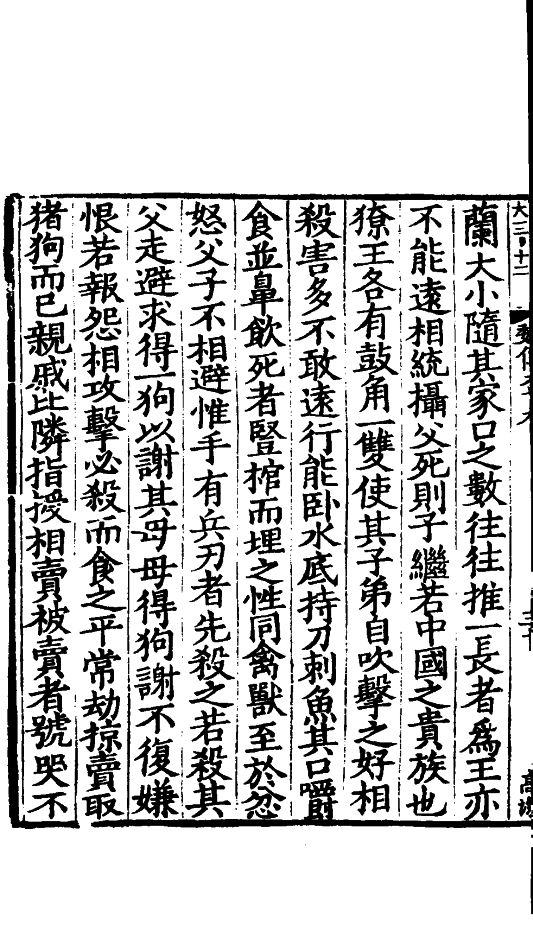 大三\十二
蘭大小隨其家口之數往往推一長者爲王亦
不能遠相統攝父死則子繼若中國之貴族也
獠王各有鼓角一雙使其子弟自吹擊之好相
殺害多不敢遠行能卧水底持刀刺魚其口嚼
食並鼻飲死者竪棺而埋之性同禽獸至於忿
怒父子不相避惟手有兵刃者先殺之若殺其
父走避求得一狗以謝其母母得狗謝不復嫌
恨若報怨相攻擊必殺而食之平常劫掠賣取
猪狗而已親戚比隣指授相賣被賣者號哭不